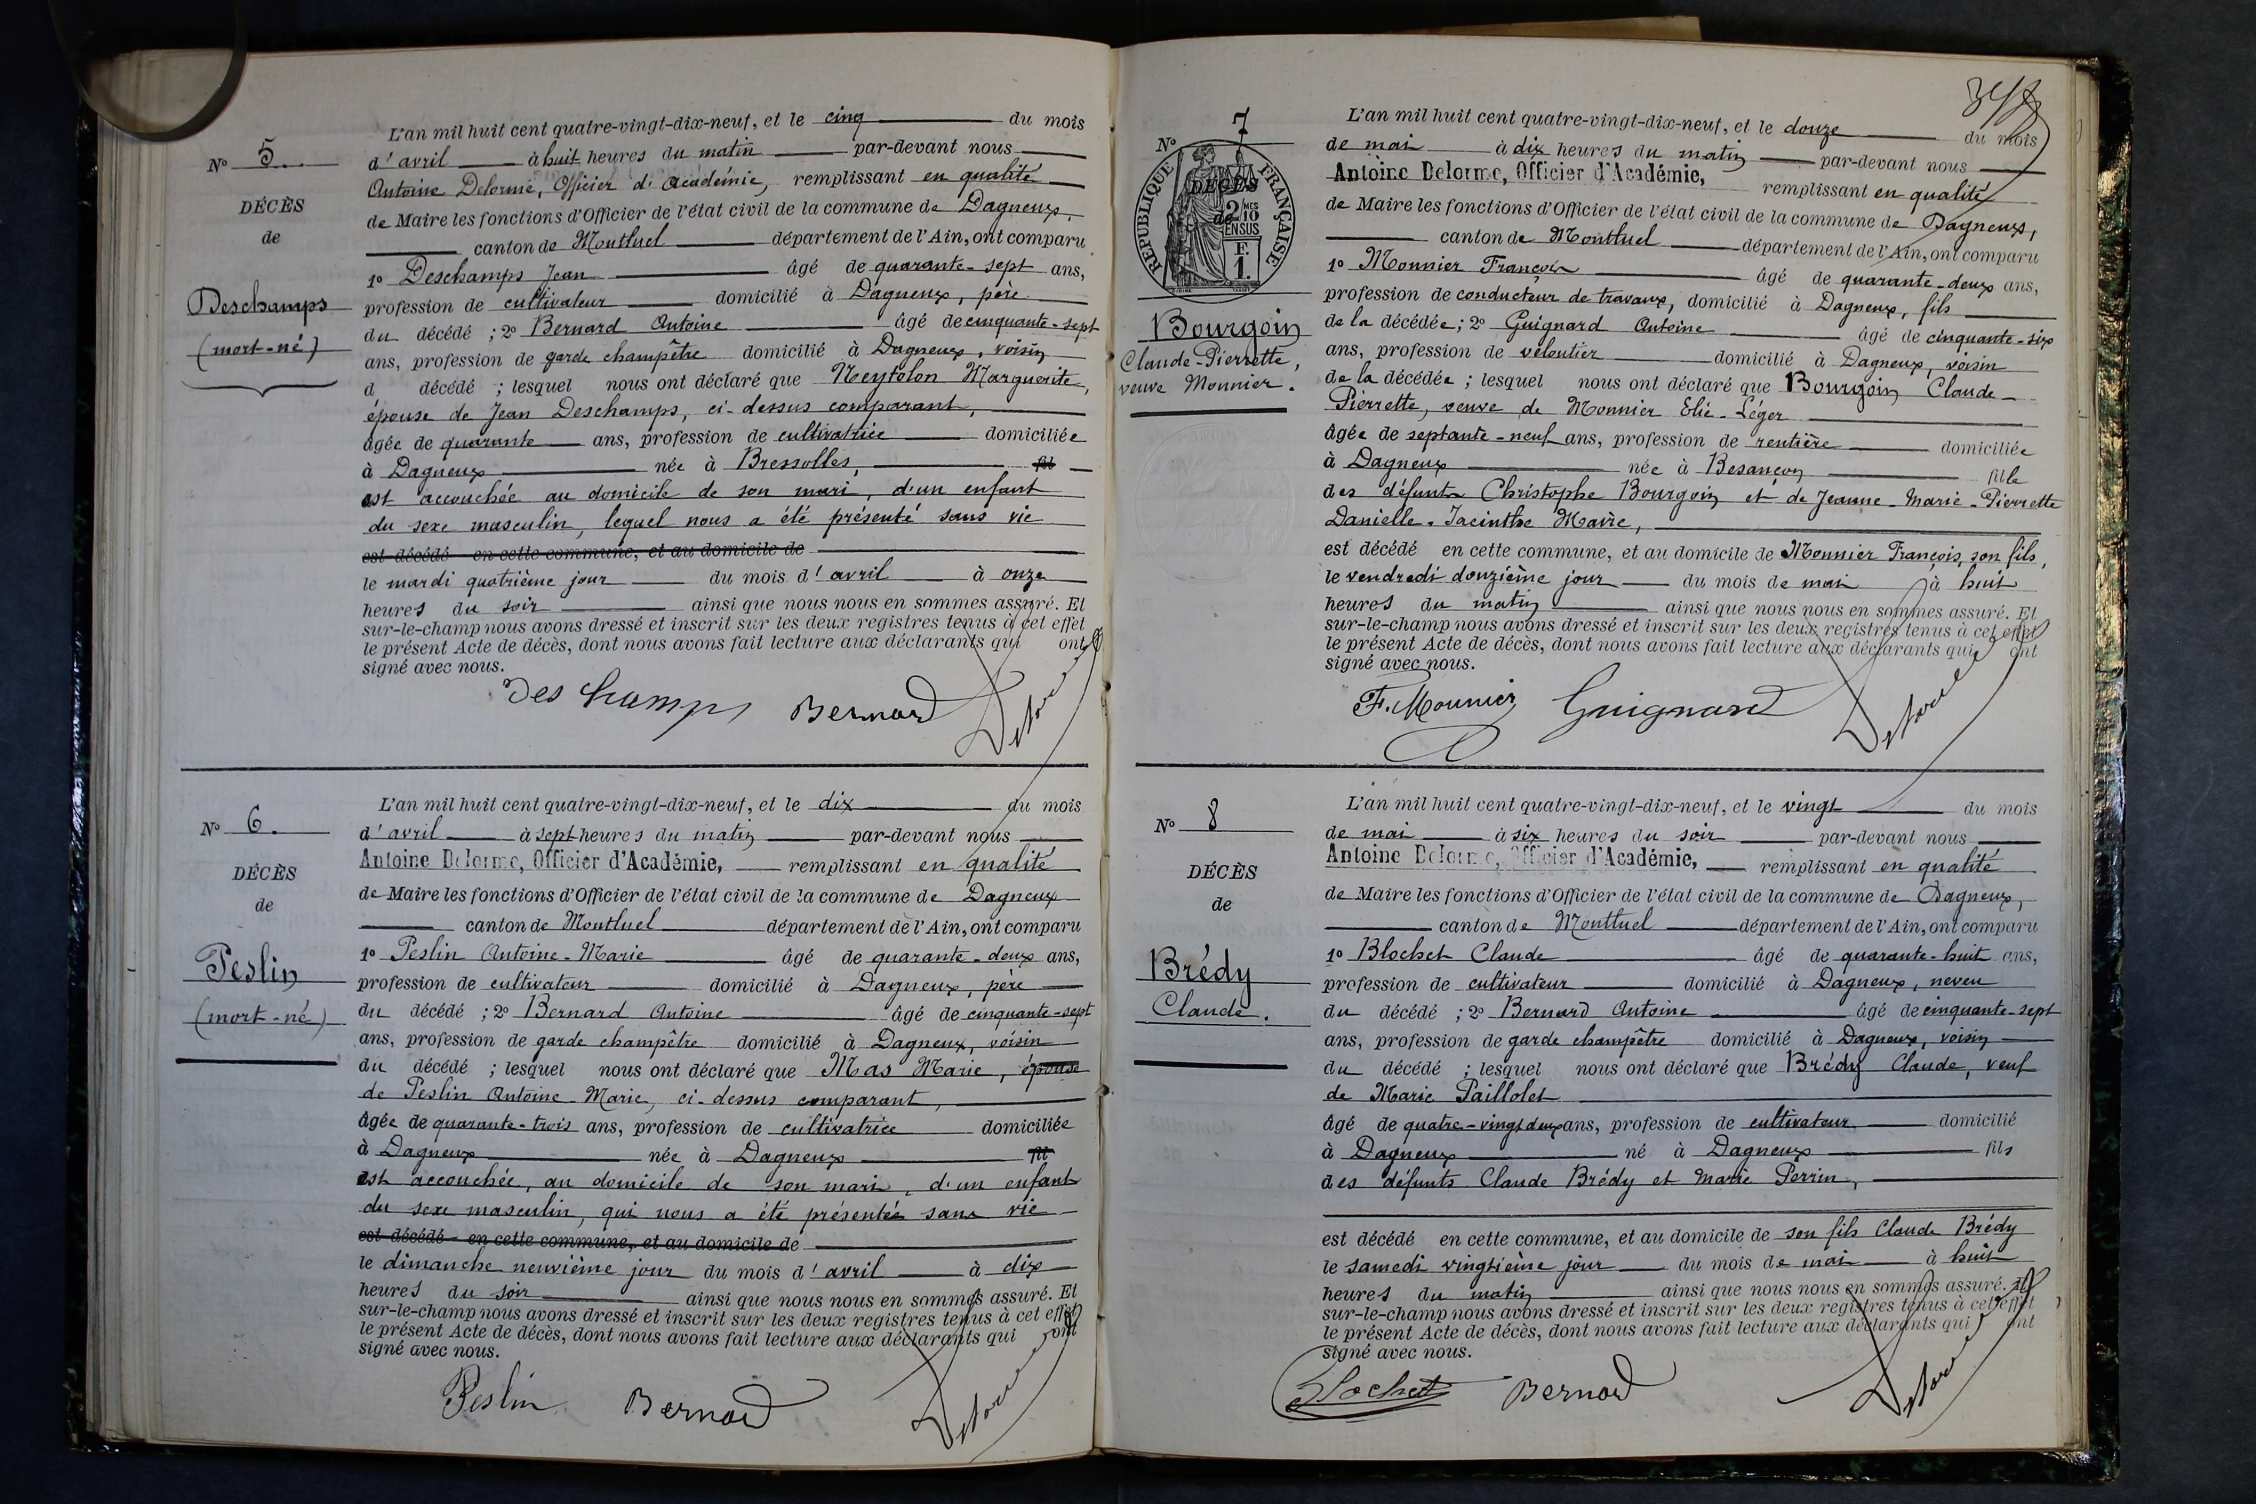 No 5
DÉCÈS
de
Deschamps
(mort-né)
L'an mil huit cent quatre-vingt-dix-neuf, et le cinq du mois
d'avril à huit heures du matin par-devant nous
Antoine Delorme, Officier d'Académie, remplissant en qualité
de Maire les fonctions d'Officier de l'état civil de la commune de Dagneux,
canton de Montluel département de l'Ain, ont comparu
1o Deschamps Jean âgé de quarante-sept ans,
profession de cultivateur domicilié à Dagneux, père
du décédé ; 2o Bernard Antoine âgé de cinquante-sept
ans, profession de garde champêtre domicilié à Dagneux, voisin
d décédé ; lesquel nous ont déclaré que Neytolon Marguerite,
épouse de Jean Deschamps, ci-dessus comparant,
âgée de quarante ans, profession de cultivatrice domiciliée
à Dagneux née à Bressolles, fil
est accouchée au domicile de son mari, d'un enfant
du sexe masculin, lequel nous a été présenté sans vie
est décédé en cette commune, et au domicile de
le mardi quatrième jour du mois d'avril à onze
heures du soir ainsi que nous nous en sommes assuré. Et
sur-le-champ nous avons dressé et inscrit sur les deux registres tenus à cet effet
le présent Acte de décès, dont nous avons fait lecture aux déclarants qui ont
signé avec nous.
Deschamps Bernard Delorme
No 6.
DÉCÈS
de
Peslin
(mort-né)
L'an mil huit cent quatre-vingt-dix-neuf, et le dix du mois
d'avril à sept heures du matin par-devant nous
Antoine Delorme, Officier d'Académie, remplissant en qualité
de Maire les fonctions d'Officier de l'état civil de la commune de Dagneux
canton de Montluel département de l'Ain, ont comparu
1o Peslin Antoine-Marie âgé de quarante-deux ans,
profession de cultivateur domicilié à Dagneux, père
du décédé ; 2o Bernard Antoine âgé de cinquante-sept
ans, profession de garde champêtre domicilié à Dagneux, voisin
du décédé ; lesquel nous ont déclaré que Mas Marie, épouse
de Peslin Antoine-Marie, ci-dessus comparant,
âgée de quarante-trois ans, profession de cultivatrice domiciliée
à Dagneux née à Dagneux fil
est accouchée, au domicile de son mari, d'un enfant
du sexe masculin, qui nous a été présentée sans vie
est décédé en cette commune, et au domicile de
le dimanche neuvième jour du mois d'avril à dix
heures du soir ainsi que nous nous en sommes assuré. Et
sur-le-champ nous avons dressé et inscrit sur les deux registres tenus à cet effet
le présent Acte de décès, dont nous avons fait lecture aux déclarants qui ont
signé avec nous.
Peslin Bernard Delorme
No 7
RÉPUBLIQUE FRANÇAISE
DÉCÈS
de
2 MES
10
EN SUS
F.
1.
Bourgoin
Claude-Pierrette,
veuve Monnier.
L'an mil huit cent quatre-vingt-dix-neuf, et le douze du mois
de mai à dix heures du matin par-devant nous
Antoine Delorme, Officier d'Académie, remplissant en qualité
de Maire les fonctions d'Officier de l'état civil de la commune de Dagneux,
canton de Montluel département de l'Ain, ont comparu
1o Monnier François âgé de quarante-deux ans,
profession de conducteur de travaux, domicilié à Dagneux, fils
de la décédée ; 2o Guignard Antoine âgé de cinquante-six
ans, profession de veloutier domicilié à Dagneux, voisin
de la décédée ; lesquel nous ont déclaré que Bourgoin Claude-
Pierrette, veuve de Monnier Elie-Léger
âgée de septante-neuf ans, profession de rentière domiciliée
à Dagneux née à Besançon fille
des défunts Christophe Bourgoin et de Jeanne-Marie-Pierrette
Danielle-Jacinthe Mavre,
est décédé en cette commune, et au domicile de Monnier François, son fils,
le vendredi douzième jour du mois de mai à huit
heures du matin ainsi que nous nous en sommes assuré. Et
sur-le-champ nous avons dressé et inscrit sur les deux registres tenus à cet effet
le présent Acte de décès, dont nous avons fait lecture aux déclarants qui ont
signé avec nous.
F. Monnier Guignard Delorme
No 8
DÉCÈS
de
Brédy
Claude.
L'an mil huit cent quatre-vingt-dix-neuf, et le vingt du mois
de mai à six heures du soir par-devant nous
Antoine Delorme, Officier d'Académie, remplissant en qualité
de Maire les fonctions d'Officier de l'état civil de la commune de Dagneux,
canton de Montluel département de l'Ain, ont comparu
1o Blochet Claude âgé de quarante-huit ans,
profession de cultivateur domicilié à Dagneux, neveu
du décédé ; 2o Bernard Antoine âgé de cinquante-sept
ans, profession de garde champêtre domicilié à Dagneux, voisin
du décédé ; lesquel nous ont déclaré que Brédy Claude, veuf
de Marie Paillolet
âgé de quatre-vingt deux ans, profession de cultivateur domicilié
à Dagneux né à Dagneux fils
des défunts Claude Brédy et Marie Perrin,
est décédé en cette commune, et au domicile de son fils Claude Brédy
le samedi vingtième jour du mois de mai à huit
heures du matin ainsi que nous nous en sommes assuré. Et
sur-le-champ nous avons dressé et inscrit sur les deux registres tenus à cet effet
le présent Acte de décès, dont nous avons fait lecture aux déclarants qui ont
signé avec nous.
Blochet Bernard Delorme